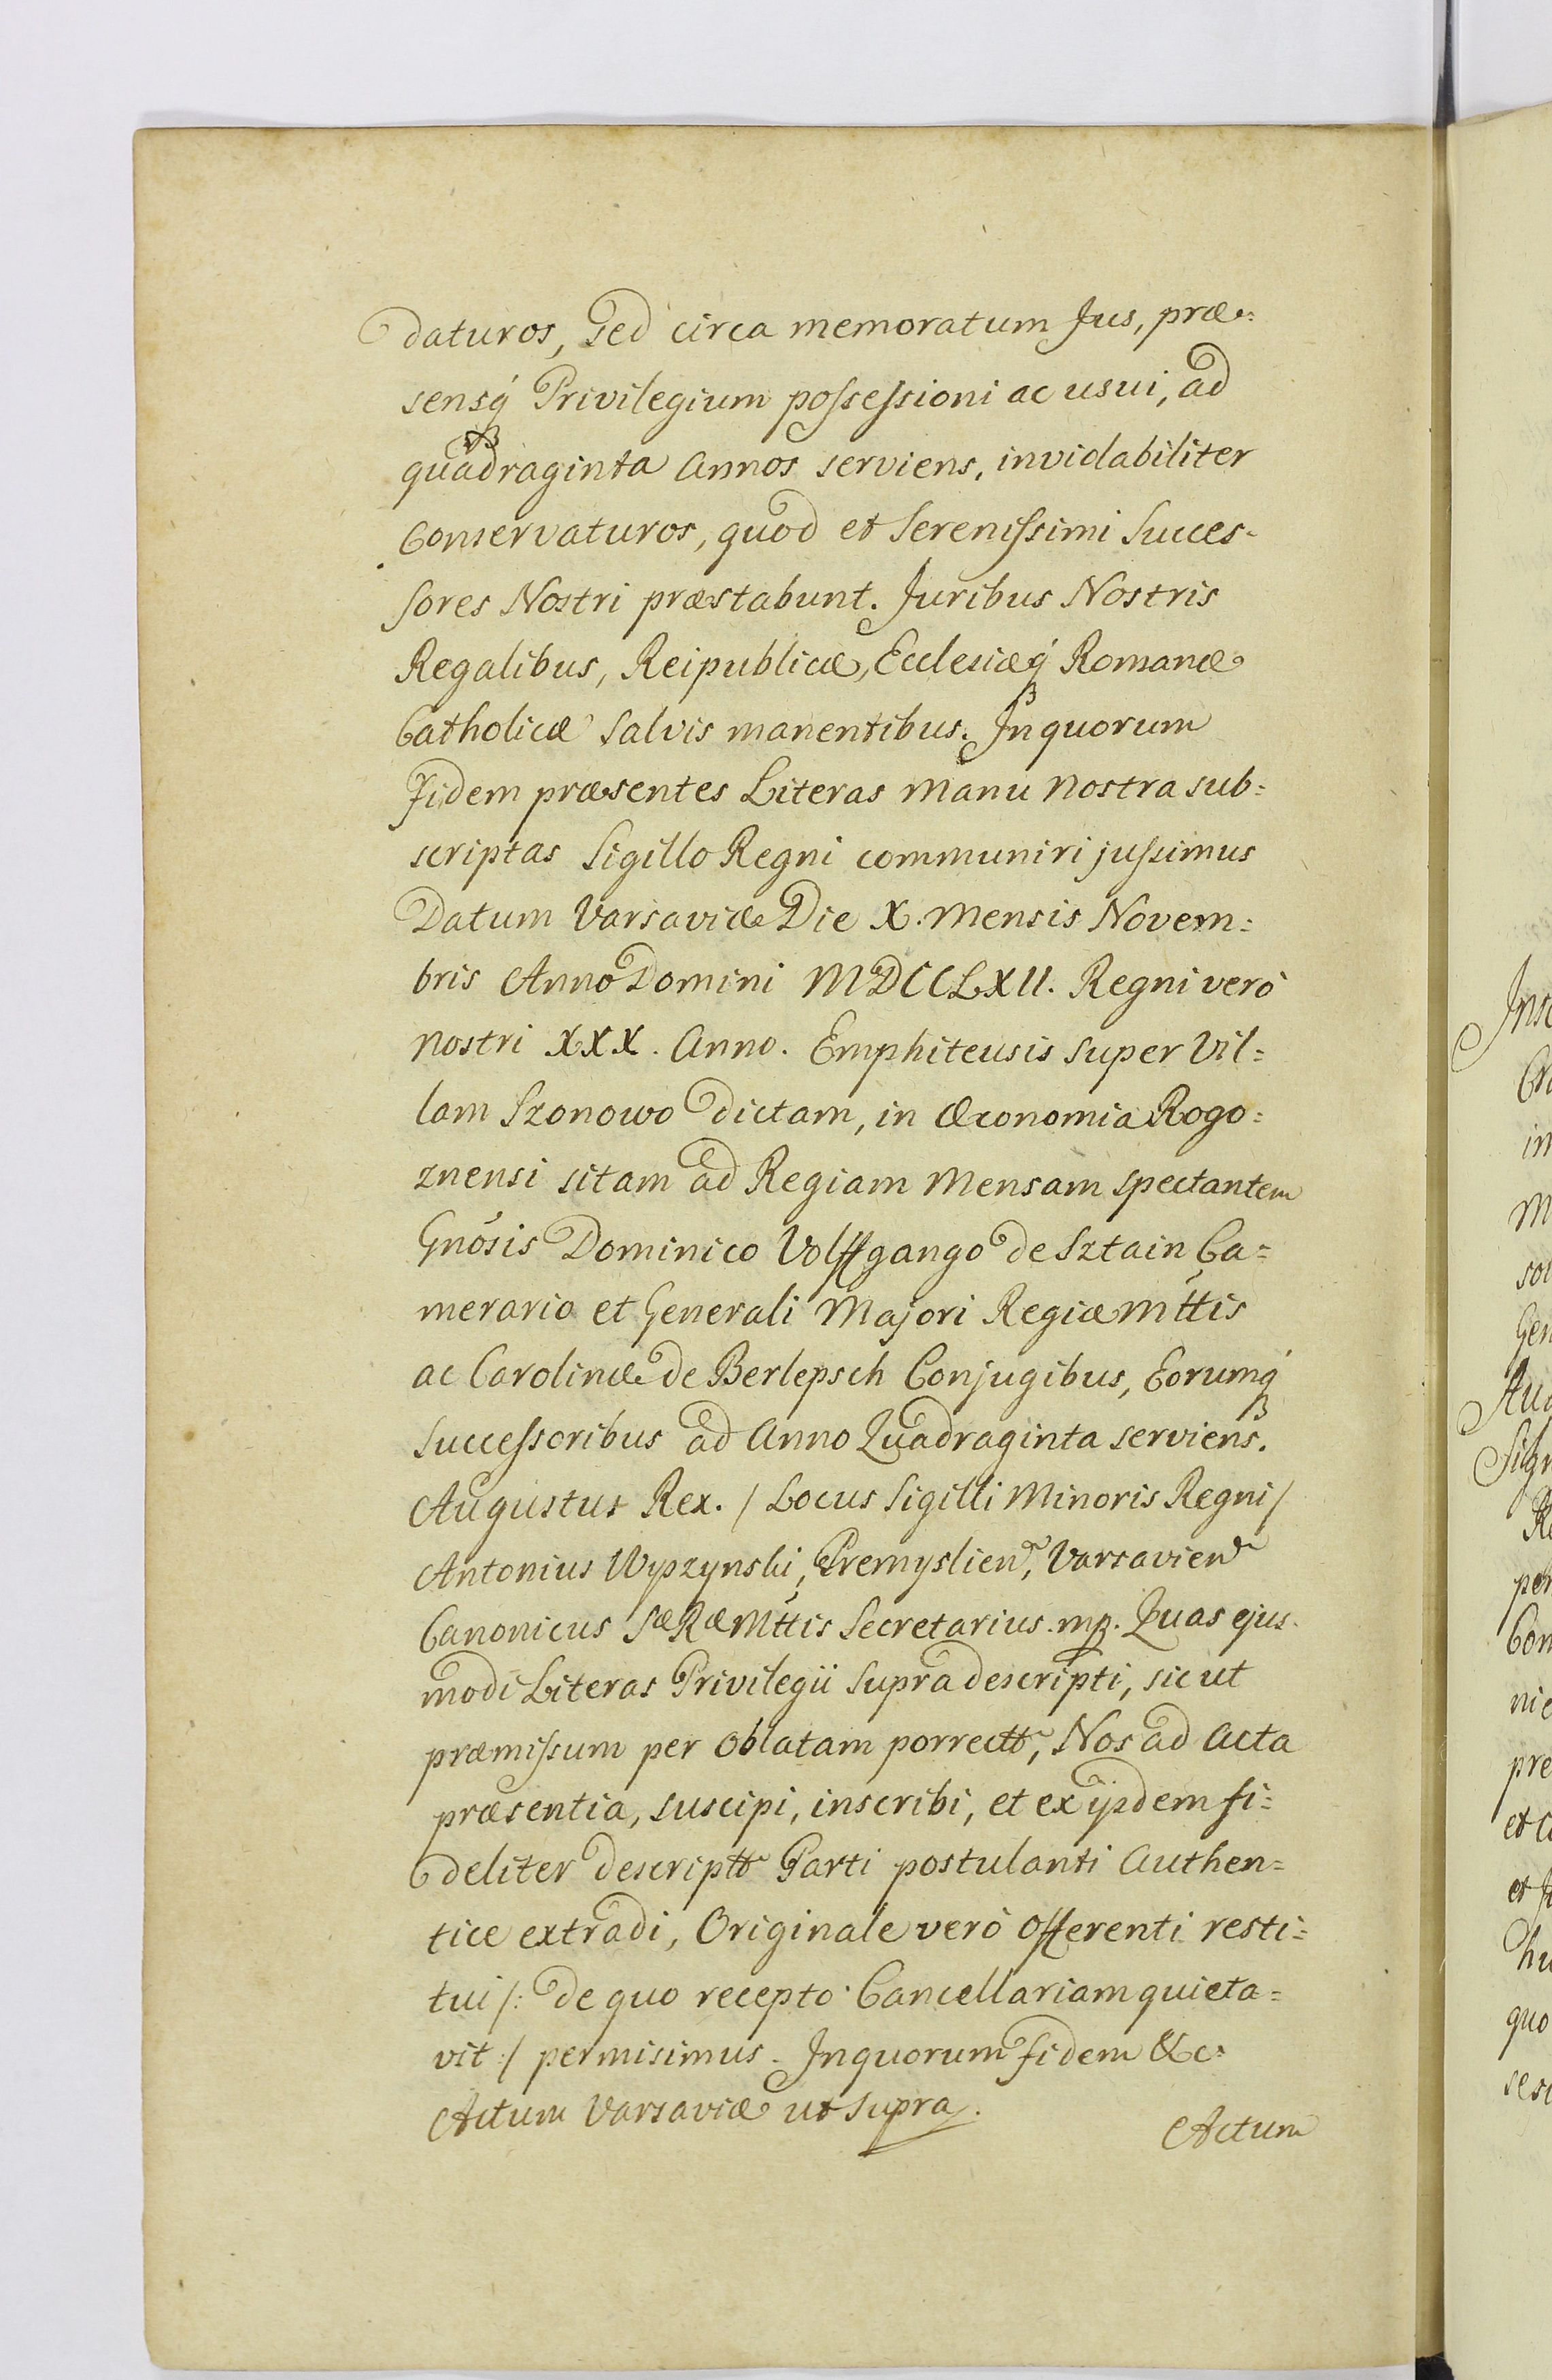 daturos, Sed circa memoratum Jus, præ=
sensq́ Privilegium possessioni ac usui, ad
quadraginta Annos serviens, inviolabiliter
Conservaturos, quod et Serenissimi Succes-
sores Nostri præstabunt. Juribus Nostris
Regalibus, Reipublicæ, Ecclesiæq́ Romanæ
Catholicæ Salvis manentibus. In quorum
Fidem præsentes Literas Manu Nostra sub=
scriptas Sigillo Regni communiri jussimus
Datum Varsaviæ Die X. Mensis Novem=
bris Anno Domini MDCCLXII. Regni verò
Nostri XXX. Anno. Emphiteusis super Vil=
lam Szonowo dictam, in Œconomia Rogo=
znensi sitam ad Regiam Mensam spectantem
Gnósis Dominico Volffgango de Sztain Ca=
merario et Generali Majori Regiæ Mttis
ac Carolinæ de Berlepsch Conjugibus, Eorumq́
Successoribus ad Anno Quadraginta serviens.
Augustus Rex. / Locus Sigilli Minoris Regni /
Antonius Wypzynski, Premyslien, Varsavien
Canonicus Sæ Ræ Mttis Secretarius. mp. Quas ejus-
modi Literas Privilegii supra descripti, sic ut
præmissum per Oblatam porrectt, Nos ad Acta
præsentia, suscipi, inscribi, et ex ijsdem fi=
deliter descriptt Parti postulanti Authen=
tice extradi, Originale verò Offerenti resti=
tui /: de quo recepto Cancellariam quieta=
vit :/ permisimus. In quorum fidem &c.
Actum Varsaviæ ut supra.
Actum